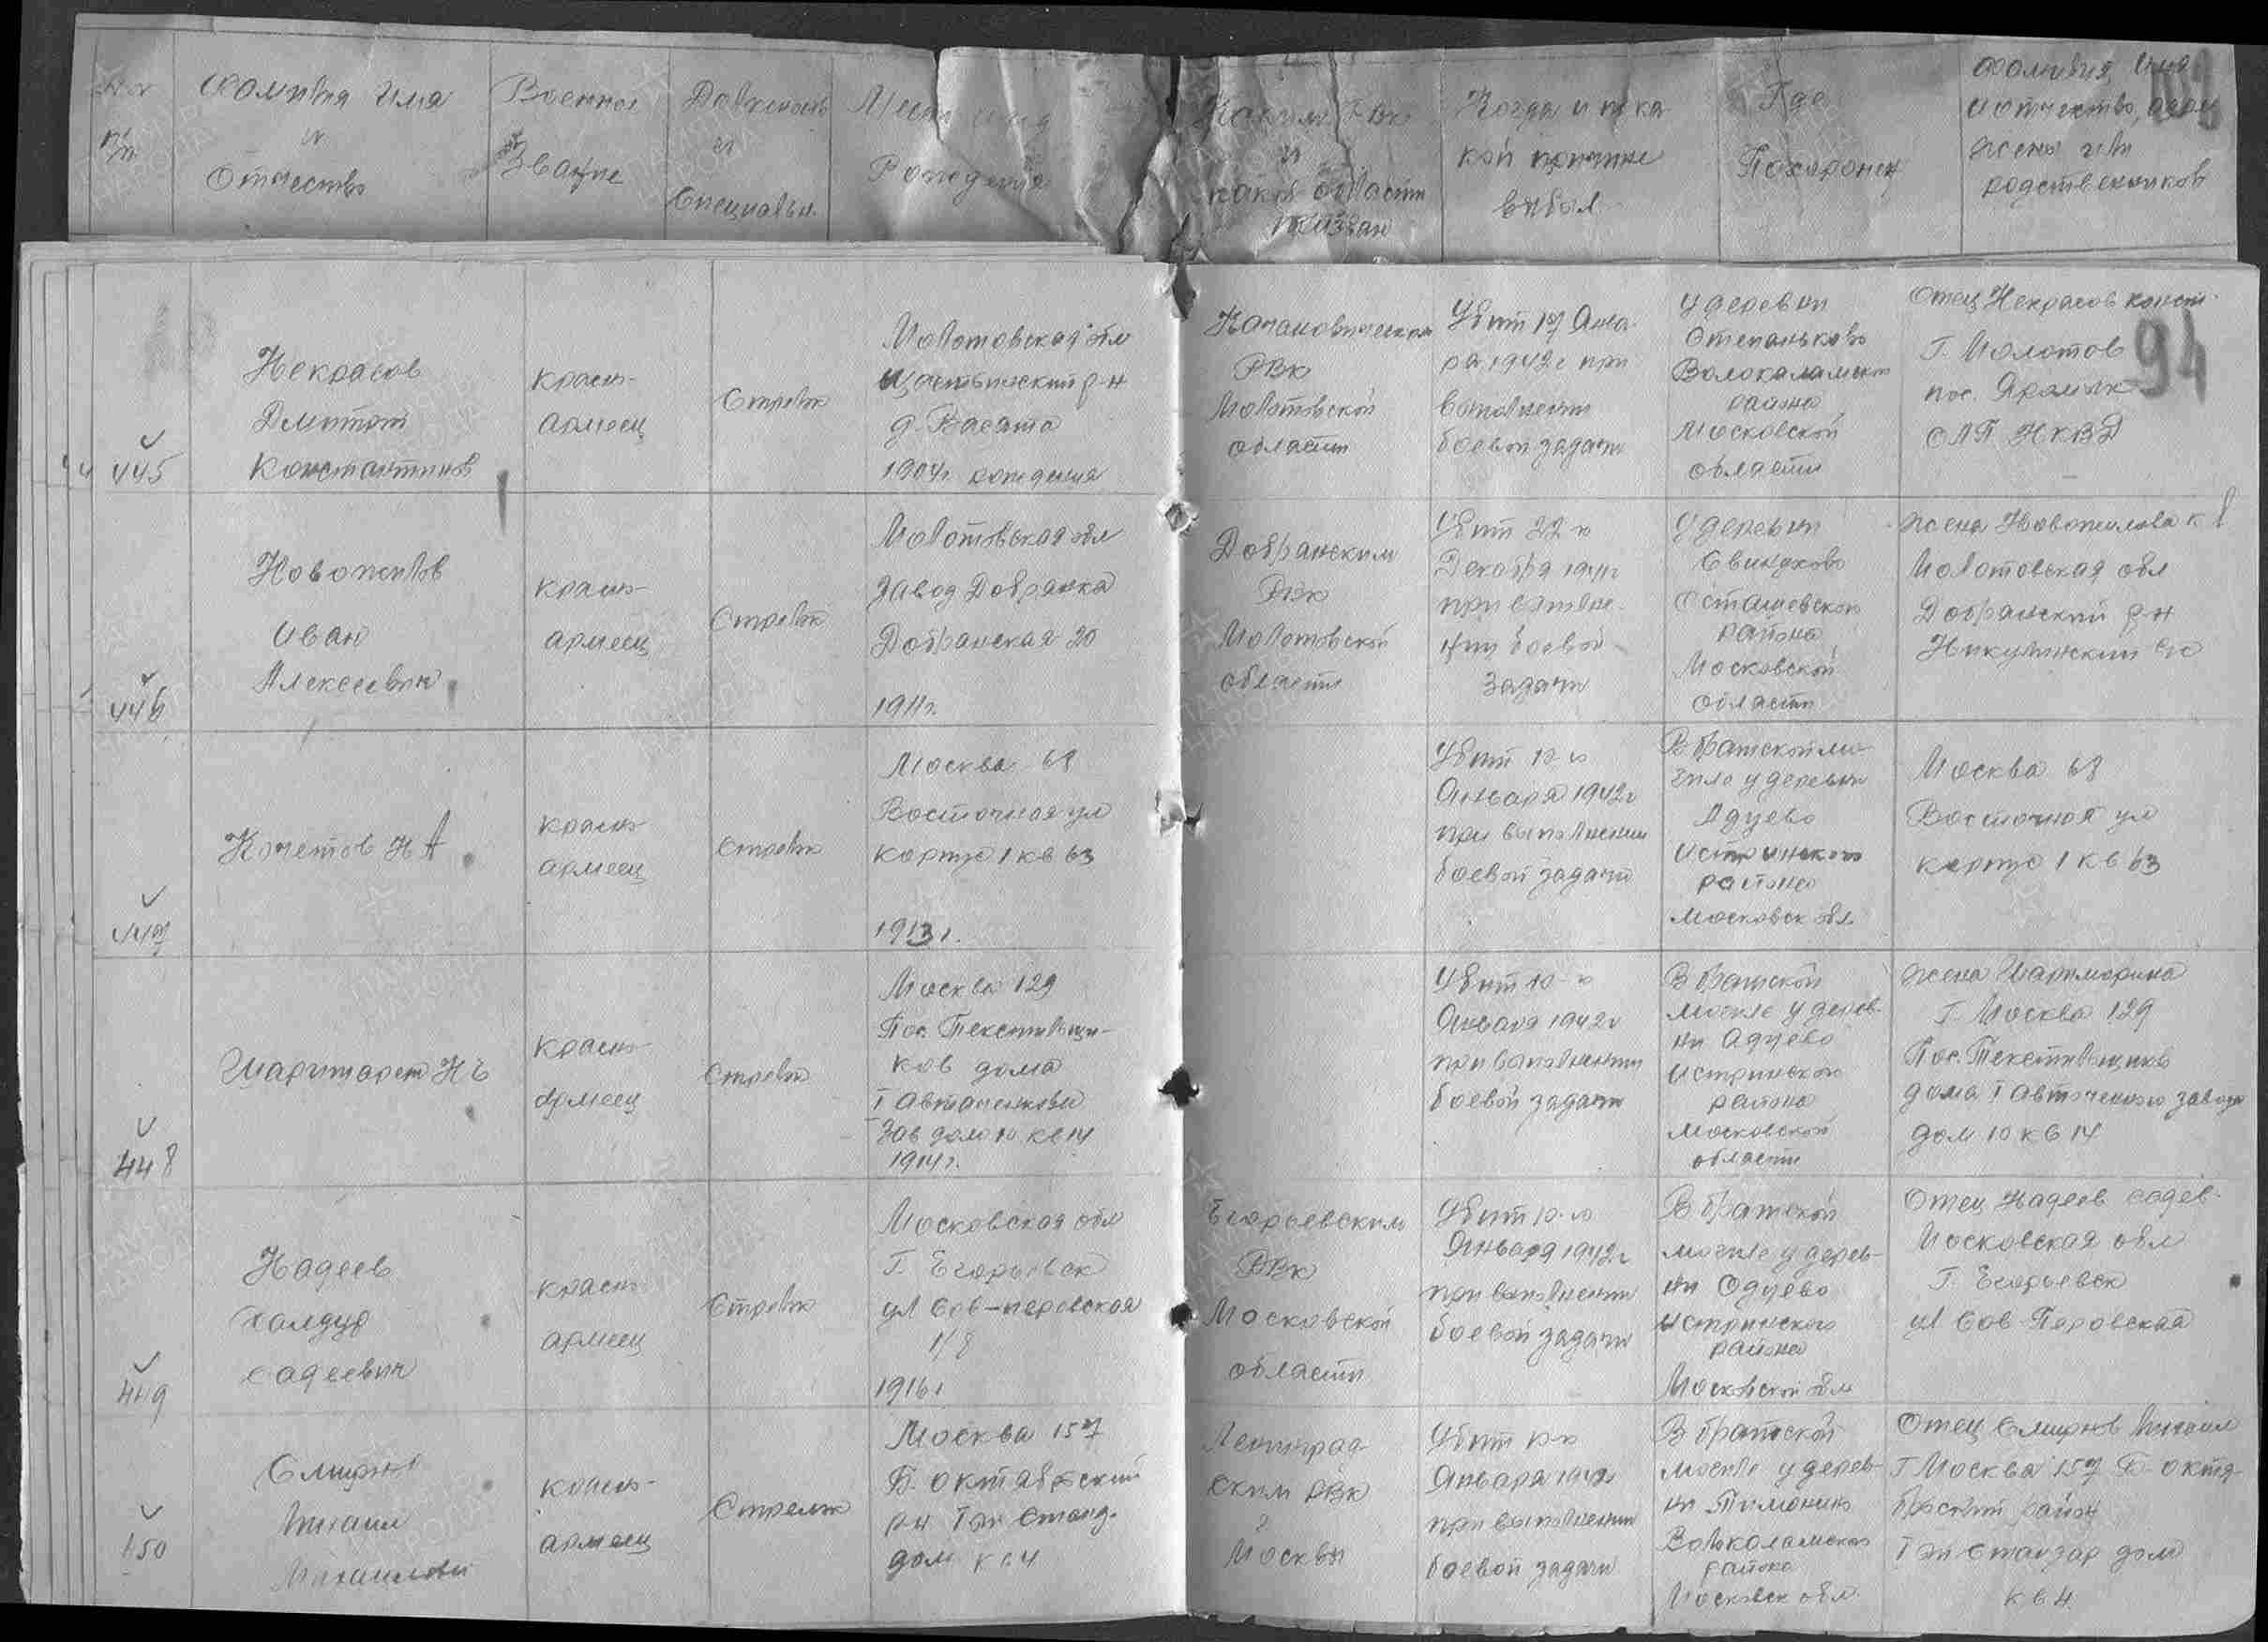 №№
п/п
Фамилия Имя
и
Отчество
Военное
Звание
Должность
и
Специальн.
Рождения
Каким РВК
и
какой области
призван
Когда и по ка
кой причине
выбыл
Где
Похоронен
Фамилия, Имя
и отчество, адрес
жены или
родственников
94
445
Некрасов
Дмитрий
Константинов
красно-
армеец
Стрелок
Молотовская обл
р-н
д. Васята
1904г. рождения
РВК
Молотовской
области
Убит 17 Янва
ра 1942г при
выполнении
боевой задачи
У деревни
Степаньково
Волоколамского
района
Московской
области
Отец Некрасов конст.
Г. Молотов
пос.
ОЛП НКВД
446
Новожилов
Иван
Алексеевич
красно-
армеец
Стрелок
Молотовская обл
Завод Добрянка
Добрянская 20
1911г.
Добрянским
РВК
Молотовской
области
Убит 22-го
Декабря 1941г
при выполне-
нии боевой
задачи
У деревни
Свинухово
Осташевского
района
Московской
области
жена Новожилова К
Молотовская обл
Добрянский р-н
Никулинский с/с
447
Кочетов Н А
красно-
армеец
стрелок
Москва 68
Восточная ул
корпус 1 кв 63
1913г.
Убит 10-го
Января 1942г
при выполнении
боевой задачи
В братской мо-
гиле у деревни
Адуево
Истринского
района
Московск обл
Москва 68
Восточная ул
корпус 1 кв 63
448
красно-
армеец
стрелок
Москва 129
Пос. Текстильщи-
ков дома
I
зав дом 10 кв 14
1914г.
Убит 10-го
Января 1942г
при выполнении
боевой задачи
В братской
могиле у дерев-
ни Адуево
Истринского
района
Московской
области
жена
Г. Москва 129
Пос. Текстильщиков
дома I завода
дом 10 кв 14
449
Надеев
Халдур
Садеевич
красно-
армеец
Стрелок
Московская обл
Г. Егорьевск
ул Соф-перовская
1/8
1916г
Егорьевским
РВК
Московской
области
Убит 10-го
Января 1942г
при выполнении
боевой задачи
В братской
могиле у дерев-
ни Одуево
Истринского
района
Московской обл
Отец Надеев Садев.
Московская обл
Г. Егорьевск
ул Соф Перовская
450
Смирнов
Михаил
Михайлович
красно-
армеец
Стрелок
Москва 157
Б. октябрьский
р-н станд.
дом кв. 4
Ленинград
ским РВК
г
Москвы
Убит 10-го
Января 1942г
при выполнении
боевой задачи
В братской
могиле у дерев-
ни Тимонино
Волоколамского
района
Московск обл.
Отец Смирнов Михаил
Г Москва 157 Б. октя-
брьский район
дом
кв 4